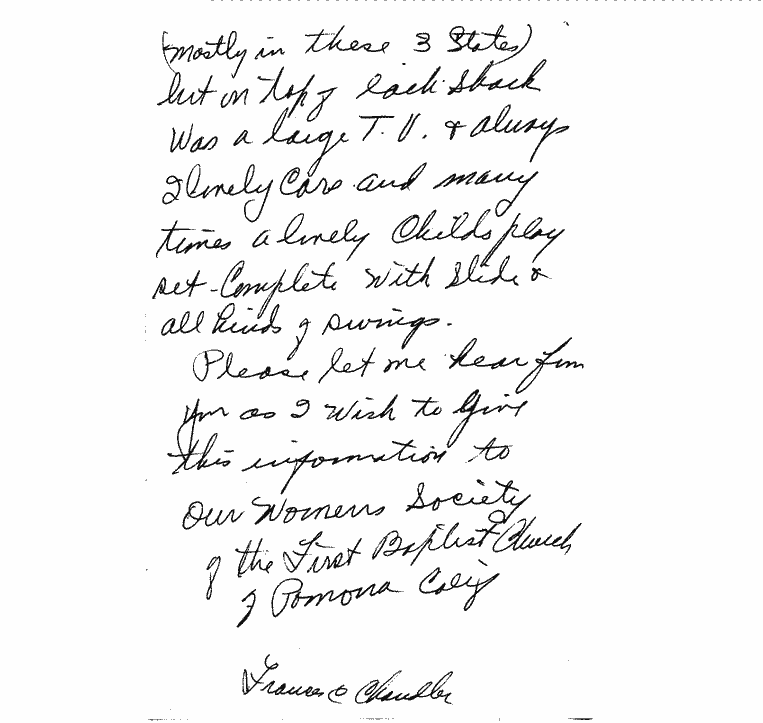 (mostly in these 3 States)
but on top of each shack
Was a large T.V. & always
2 lovely Cars and many
times a lovely Childs play
set - Complete With slide &
all kinds of swings.
Please let me hear from
you as I Wish to Give
this information to
Our Womens Society
of the First Baptist Church
of Pomona Calif
Frances C Chandler